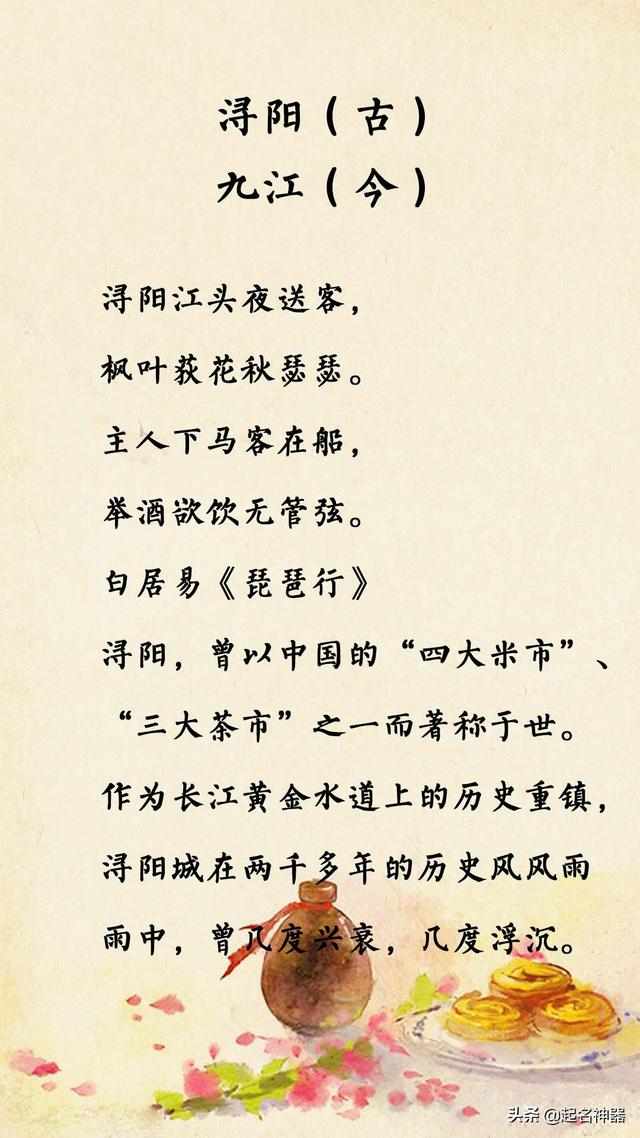 浔阳（古）
九江（今）
浔阳江头夜送客，
枫叶荻花秋瑟瑟。
主人下马客在船，
举酒欲饮无管弦。
白居易《琵琶行》
浔阳，曾以中国的“四大米市”、
“三大茶市”之一而著称于世。
作为长江黄金水道上的历史重镇，
浔阳城在两千多年的历史风风雨
雨中，曾几度兴衰，几度浮沉。
头条 @起名神器